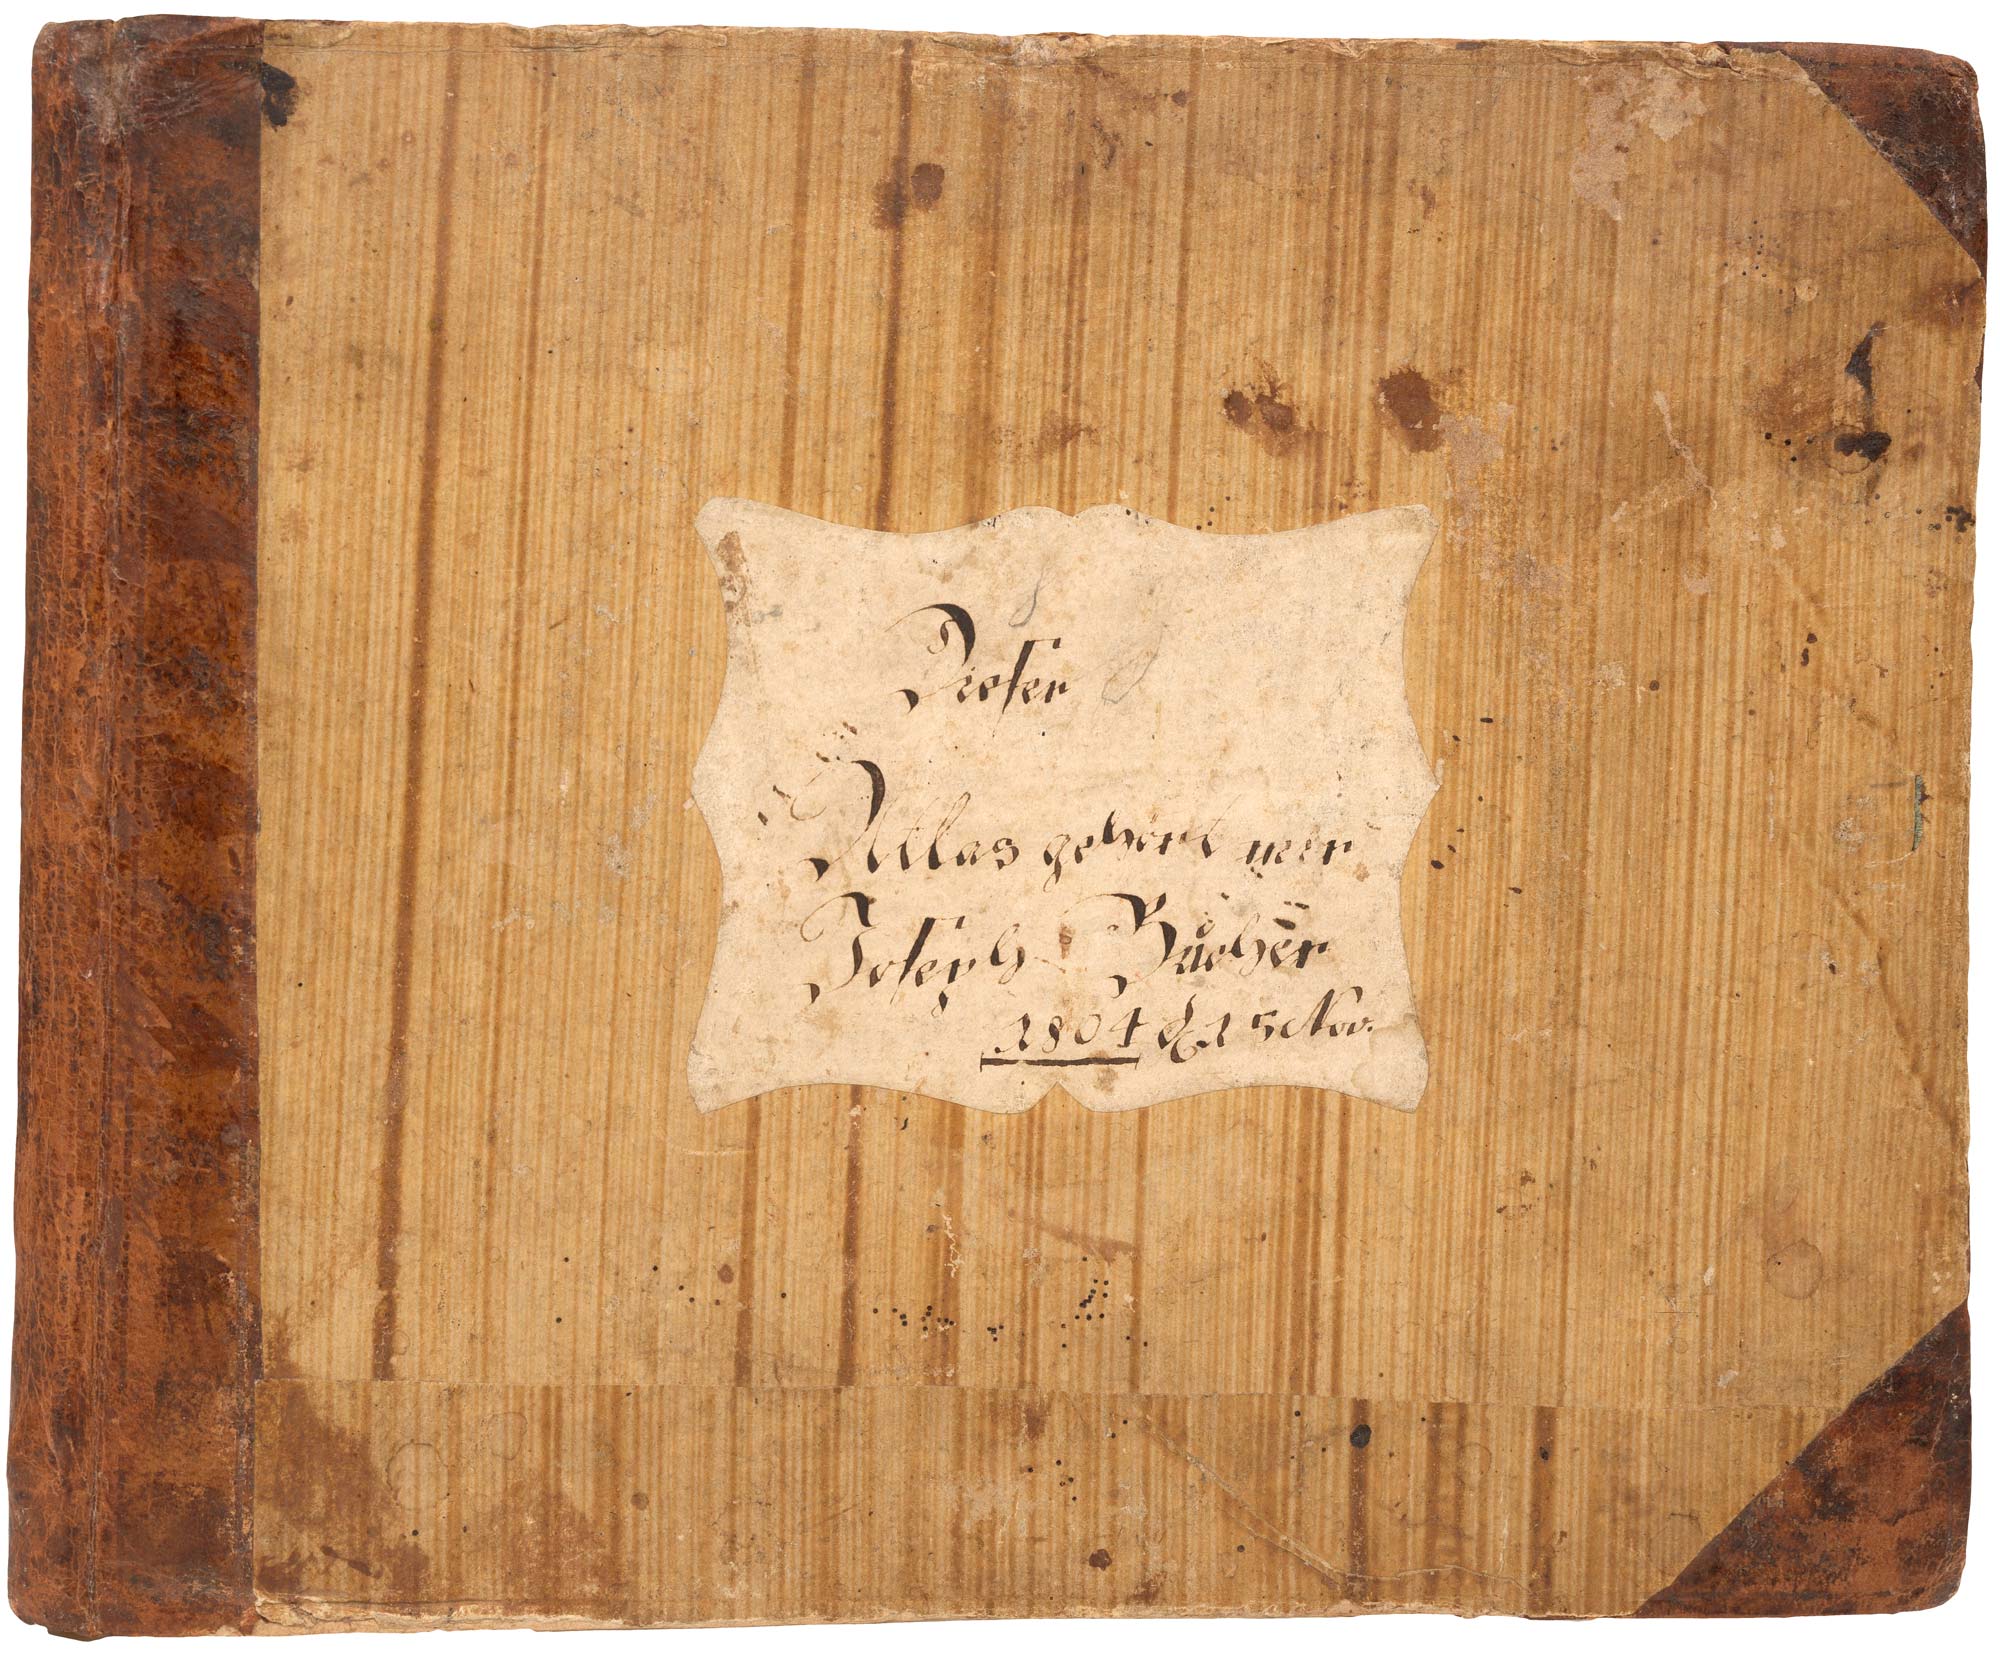 Dieser
Atlas gehört mir
Joseph Bucher
1804 d 15 Nov.